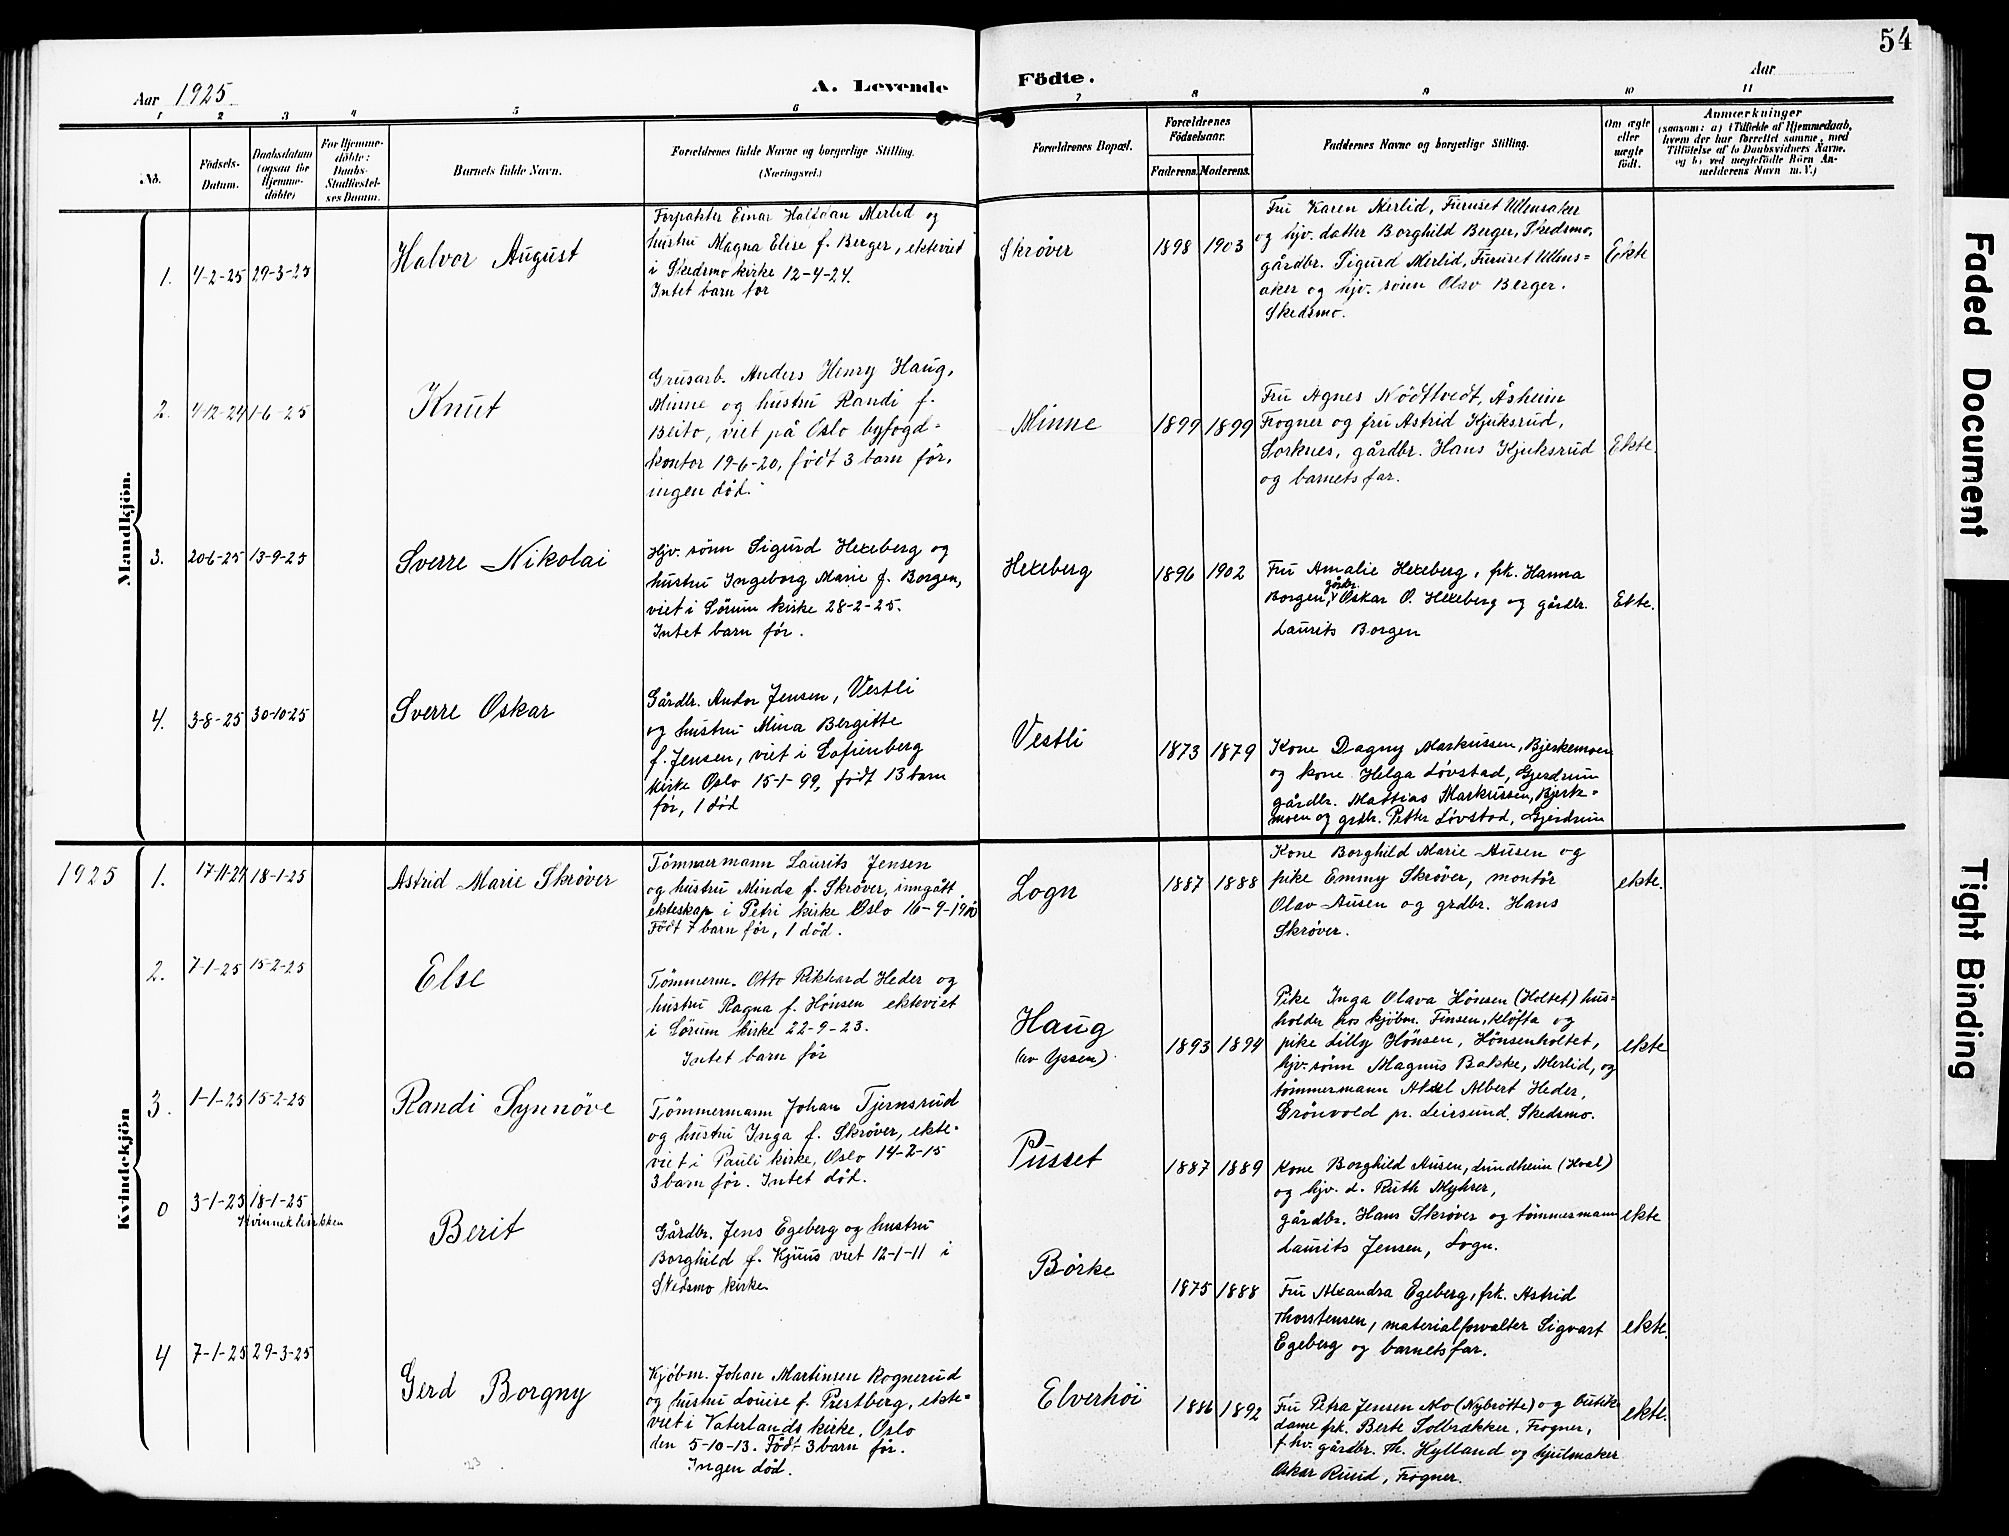 54
Aar 1925
A. Levende Födte.
Aar
1 2 3 4 5 6 7 8 9 10 11
No.
Födsels-Datum.
Daabsdatum (ogsaa for Hjemmedöbte)
For Hjemmedöbte: Daabs-Stadfæstelses Datum.
Barnets fulde Navn.
Forældrenes fulde Navne og borgerlige Stilling.
(Næringsvei.)
Forældrenes Bopæl.
Forældrenes Födselsaar.
Faderens. Moderens.
Faddernes Navne og borgerlige Stilling.
Om ægte eller uægte født.
Anmærkninger
(saasom: a) i Tilfælde af Hjemmedaab, hvem der har forrettet samme, med Tilföielse af to Daabsvidners Navne, og b) ved uægtefödte Börn Anmelderens Navn m. V.)
Mandkjön.
1. 4-2-25 29-3-25
Halvor August
Forpakter Einar Halfdan Merlid og
hustru Magna Elise f. Berger, ekteviet
i Skedsmo kirke 12-4-24.
Intet barn før
Skrøver
1898 1903
Fru Karen Merlid, Furuset Ullensaker
og hjv. datter Borghild Berger, Skedsmo,
gårdbr. Sigurd Merlid, Furuset Ullens=
aker og hjv. sönn Olav Berger.
Skedsmo.
Ekte
2. 4-12-24 1-6-25
Knut
Grusarb. Anders Henry Haug,
Minne og hustru Randi f.
Beito, viet på Oslo byfogd=
kontor 19-6-20, født 3 barn før,
ingen død.
Minne
1899 1899
Fru Agnes Nödtvedt, Åsheim
Frogner og fru Astrid Kjuksrud,
Sorknes, gårdbr. Hans Kjuksrud
og barnets far.
Ekte.
3. 20-6-25 13-9-25
Sverre Nikolai
Hjv. sönn Sigurd Hexeberg og
hustru Ingeborg Marie f. Borgen,
viet i Sörum kirke 28-2-25.
Intet barn før.
Hexeberg
1896 1902
Fru Amalie Hexeberg, frk. Hanna
Borgen, gårdbr. Oskar O. Hexeberg og gårdbr.
Laurits Borgen
Ekte.
4. 3-8-25 30-10-25
Sverre Oskar
Gårdbr. Andor Jensen, Vestli
og hustru Mina Bergitte
f. Jensen, viet i Sofienberg
kirke Oslo 15-1-99, født 13 barn
før, 1 død
Vestli
1873 1879
Kone Dagny Markussen, Bjerkemoen
og kone Helga Løvstad, Gjerdrum
gårdbr. Mattias Markussen, Bjerk=
moen og grdbr. Petter Løvstad, Gjerdrum
Kvindekjön
1925
1. 17-11-24 18-1-25
Astrid Marie Skrøver
Tömmermann Laurits Jensen
og hustru Minda f. Skrøver, inngått
ekteskap i Petri kirke Oslo 16-9-1910
Födt 7 barn før, 1 død.
Sogn
1887 1888
Kone Borghild Marie Ausen og
pike Emmy Skrøver, montør
Olav Ausen og grdbr. Hans
Skrøver.
ekte.
2. 7-1-25 15-2-25
Else
Tömmerm. Otto Rikhard Heder og
hustru Ragna f. Hönsen ekteviet
i Sörum kirke 22-9-23.
Intet barn før
Haug
(av Yssen)
1893 1894
Pike Inga Olava Hönsen (Holtet) hus=
holder hos kjøbm. Finsen, Kløfta og
pike Lilly Hönsen, Hönsenholtet,
hjv. sønn Magnus Bakke, Merlid, og
tømmermann Aksel Albert Heder,
Grönvold pr. Leirsund, Skedsmo.
ekte
3. 1-1-25 15-2-25
Randi Synnöve
Tjømmermann Johan Tjernsrud
og hustru Inga f. Skrøver, ekte=
viet i Pauli kirke, Oslo 14-2-15
3 barn før. Intet død.
Pusset
1887 1889
Kone Borghild Ausen, Lundheim (Hval)
og hjv. d. Ruth Myhrer,
gårdbr. Hans Skrøver og tømmermann
Laurits Jensen, Sogn.
ekte
0 3-1-25 18-1-25
Kvinneklinikken
Berit
Gårdbr. Jens Egeberg og hustru
Borghild f. Kjuus viet 12-1-11 i
Skedsmo kirke.
Börke
1875 1888
Fru Alexandra Egeberg, frk. Astrid
Thorstensen, materialforvalter Sigvart
Egeberg og barnets far.
ekte.
4 7-1-25 29-3-25
Gerd Borgny
Kjøbm. Johan Martinsen Rognerud
og hustru Louise f. Prestberg, ekte=
viet i Vaterlands kirke, Oslo
den 5-10-13. Födt 3 barn før.
Ingen død.
Elverhöi
1886 1892
Fru Petra Jensen Mo (Nybråtte) og butikk
dame frk. Berte Solbrækker, Frogner,
f. hv. gårdbr. Th. Hylland og hjulmaker
Oskar Ruud, Frogner.
ekte.
23
Faded Document
Tight Binding